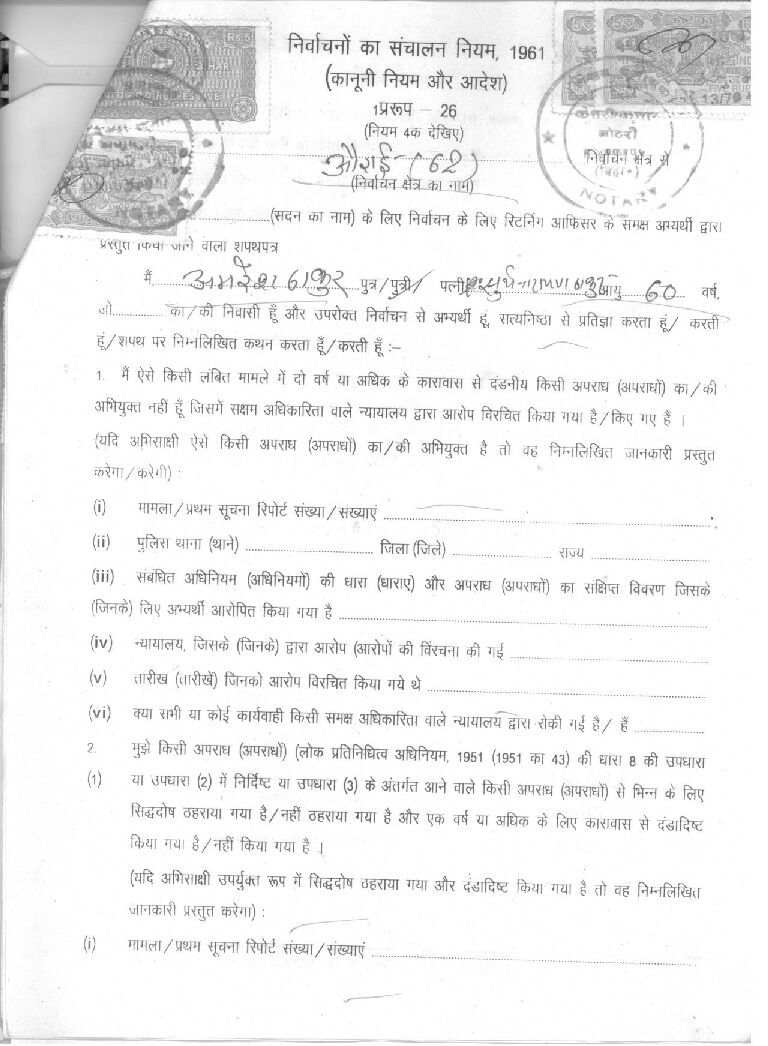 निर्वाचनों का संचालन नियम, 1961
(कानूनी नियम और आदेश)
1प्ररूप – 26
(नियम 4क देखिए)
औराई-(62) निर्वाचन क्षेत्र से
(निर्वाचन क्षेत्र का नाम)
NOTARY
(सदन का नाम) के लिए निर्वाचन के लिए रिटर्निंग आफिसर के समक्ष अभ्यर्थी द्वारा
प्रस्तुत किया जाने वाला शपथपत्र
मैं ठाकुर पुत्र/पुत्री/ पत्नी आयु 60 वर्ष,
जो का/की निवासी हूँ और उपरोक्त निर्वाचन से अभ्यर्थी हूं, सत्यनिष्ठा से प्रतिज्ञा करता हूँ/ करती
हूं/शपथ पर निम्नलिखित कथन करता हूँ/करती हूँ :–
1. मैं ऐसे किसी लंबित मामले में दो वर्ष या अधिक के कारावास से दंडनीय किसी अपराध (अपराधों) का/की
अभियुक्त नहीं हूँ जिसमें सक्षम अधिकारिता वाले न्यायालय द्वारा आरोप विरचित किया गया है/किए गए हैं ।
(यदि अभिसाक्षी ऐसे किसी अपराध (अपराधों) का/की अभियुक्त है तो वह निम्नलिखित जानकारी प्रस्तुत
करेगा/करेगी) :
(i) मामला/प्रथम सूचना रिपोर्ट संख्या/संख्याएं
(ii) पुलिस थाना (थाने) जिला (जिले) राज्य
(iii) संबंधित अधिनियम (अधिनियमों) की धारा (धाराएं) और अपराध (अपराधों) का संक्षिप्त विवरण जिसके
(जिनके) लिए अभ्यर्थी आरोपित किया गया है
(iv) न्यायालय, जिसके (जिनके) द्वारा आरोप (आरोपों की विंरचना की गई
(v) तारीख (तारीखें) जिनको आरोप विरचित किया गये थे
(vi) क्या सभी या कोई कार्यवाही किसी समक्ष अधिकारिता वाले न्यायालय द्वारा रोकी गई है/ हैं
2. मुझे किसी अपराध (अपराधों) (लोक प्रतिनिधित्व अधिनियम, 1951 (1951 का 43) की धारा 8 की उपधारा
(1) या उपधारा (2) में निर्दिष्ट या उपधारा (3) के अंतर्गत आने वाले किसी अपराध (अपराधों) से भिन्न के लिए
सिद्धदोष ठहराया गया है/नहीं ठहराया गया है और एक वर्ष या अधिक के लिए कारावास से दंडादिष्ट
किया गया है/नहीं किया गया है ।
(यदि अभिसाक्षी उपर्युक्त रूप में सिद्धदोष ठहराया गया और दंडादिष्ट किया गया है तो वह निम्नलिखित
जानकारी प्रस्तुत करेगा) :
(i) मामला/प्रथम सूचना रिपोर्ट संख्या/संख्याएं